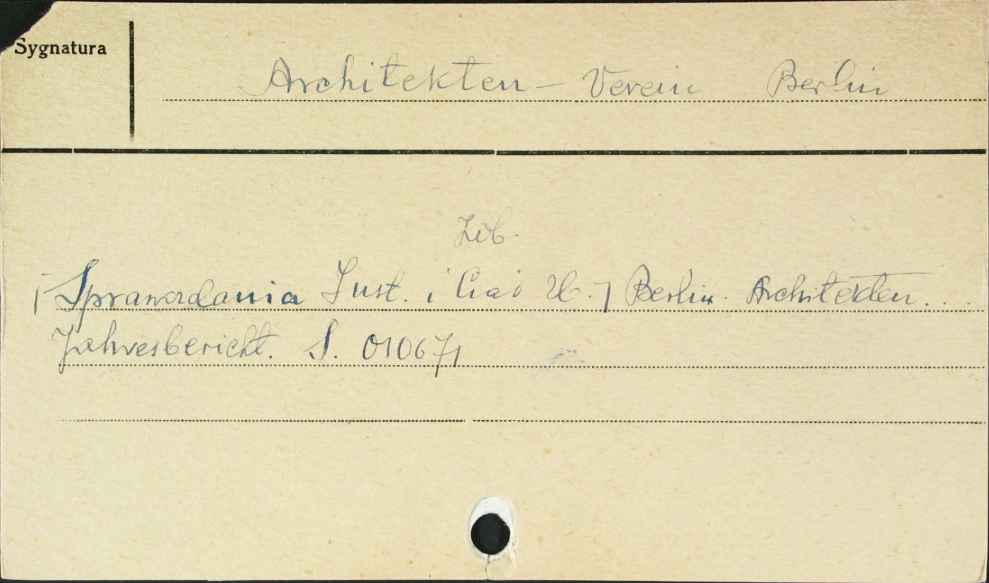 Sygnatura
Architekten - Verein Berlin
Zob.
[Sprawozdania Inst. i Ciał Ub.] Berlin. Architekten...
Jahresbericht. S. 010671